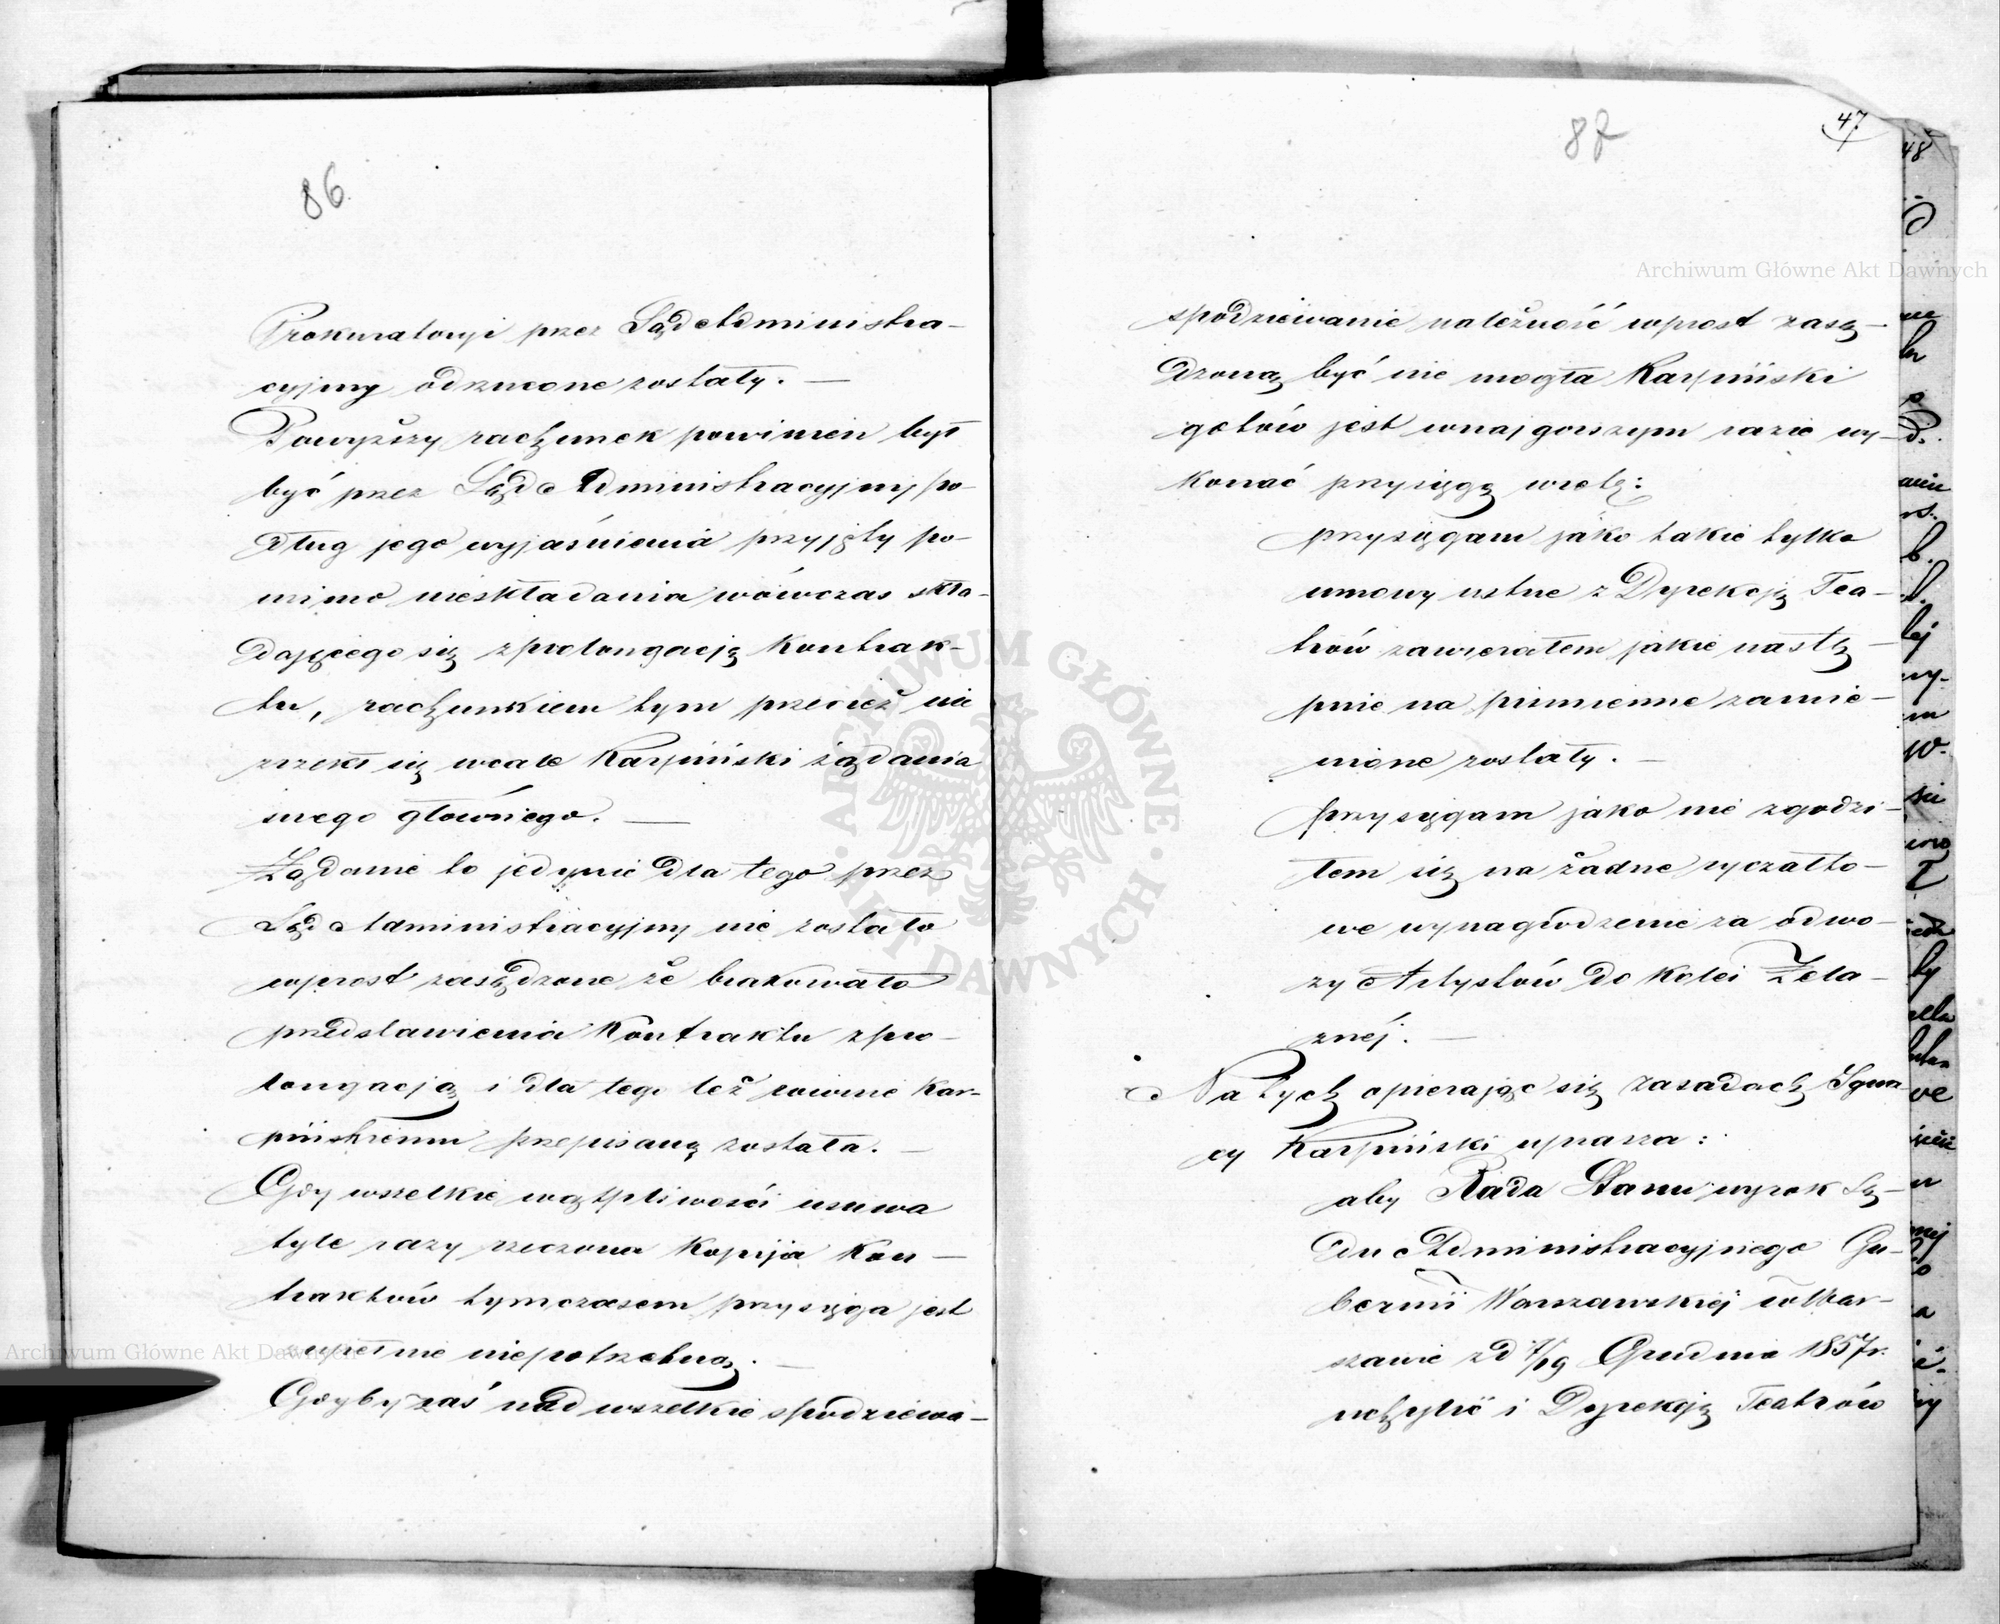 86.
Prokuratoryi przez Sąd Administra-
cyjny odrzucone zostały. —
Powyższy rachunek powinien był
być przez Sąd Administracyjny po-
dług jego wyjaśnienia przyjęty po-
mimo nieskładania wówczas skła-
dającego się z prolongacją Kontrak-
tu, rachunkiem tym przecież nie
zrzekł się wcale Karpiński żądania
swego głównego. —
Żądanie to jedynie dla tego przez
Sąd Administracyjny nie zostało
wprost zasądzone że brakowało
przedstawienia Kontraktu z pro-
longacją i dla tego też równie Kar-
pińskiemu przepisaną została. —
Gdy wszelkie wątpliwości usuwa
tyle razy rzeczona Kopija Kon-
traktów tymczasem przysięga jest
zupełnie niepotrzebną. —
Gdyby zaś nad wszelkie spodziewa-
87
47.
spodziewanie należność wprost zasą-
dzoną być nie mogła Karpiński
gotów jest wnajgorszym razie wy-
konać przysięgę wrotę:
przysięgam jako takie tylko
umowy ustne z Dyrekcją Tea-
trów zawierałem jakie nastę-
pnie na piśmienne zamie-
nione zostały. —
przysięgam jako nie zgodzi-
łem się na żadne ryczałto-
we wynagrodzenie za odwo-
zy Artystów do Kolei Żela-
znéj. —
Na tych opierając się zasadach Igna
cy Karpiński uprasza:
aby Rada Stanu wyrok Są-
du Administracyjnego Gu-
bernii Warszawskiéj w War-
szawie z d 7/19 Grudnia 1857 r.
uchylić i Dyrekcją Teatrów
48
Archiwum Główne Akt Dawnych
Archiwum Główne Akt Dawnych
ARCHIWUM GŁÓWNE · AKT DAWNYCH ·